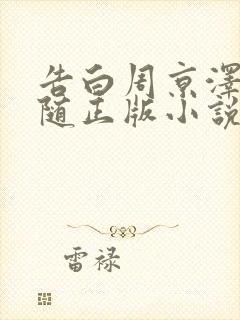 告白周京澤
随正版小說
雷禄